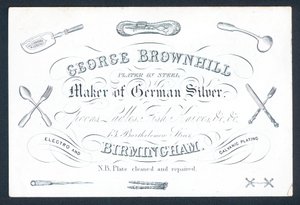 GEORGE BROWNHILL
PLATER ON STEEL,
Maker of German Silver.
Spoons, Ladles, Fish Knives, &c. &c.
Bartholomew
BIRMINGHAM.
ELECTRO AND
GALVANIC PLATING
N.B. Plate cleaned and repaired.